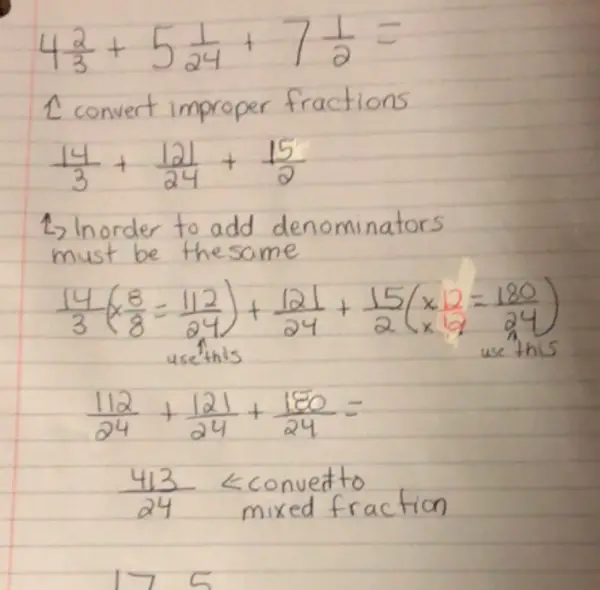 4 2/3 + 5 1/24 + 7 1/2 =
convert improper fractions
14/3 + 121/24 + 15/2
Inorder to add denominators
must be the same
14/3 (x 8/8 = 112/24) + 121/24 + 15/2 (x 12 / x 12 = 180/24)
use this use this
112/24 + 121/24 + 180/24 =
413/24 < convert to
mixed fraction
17 5